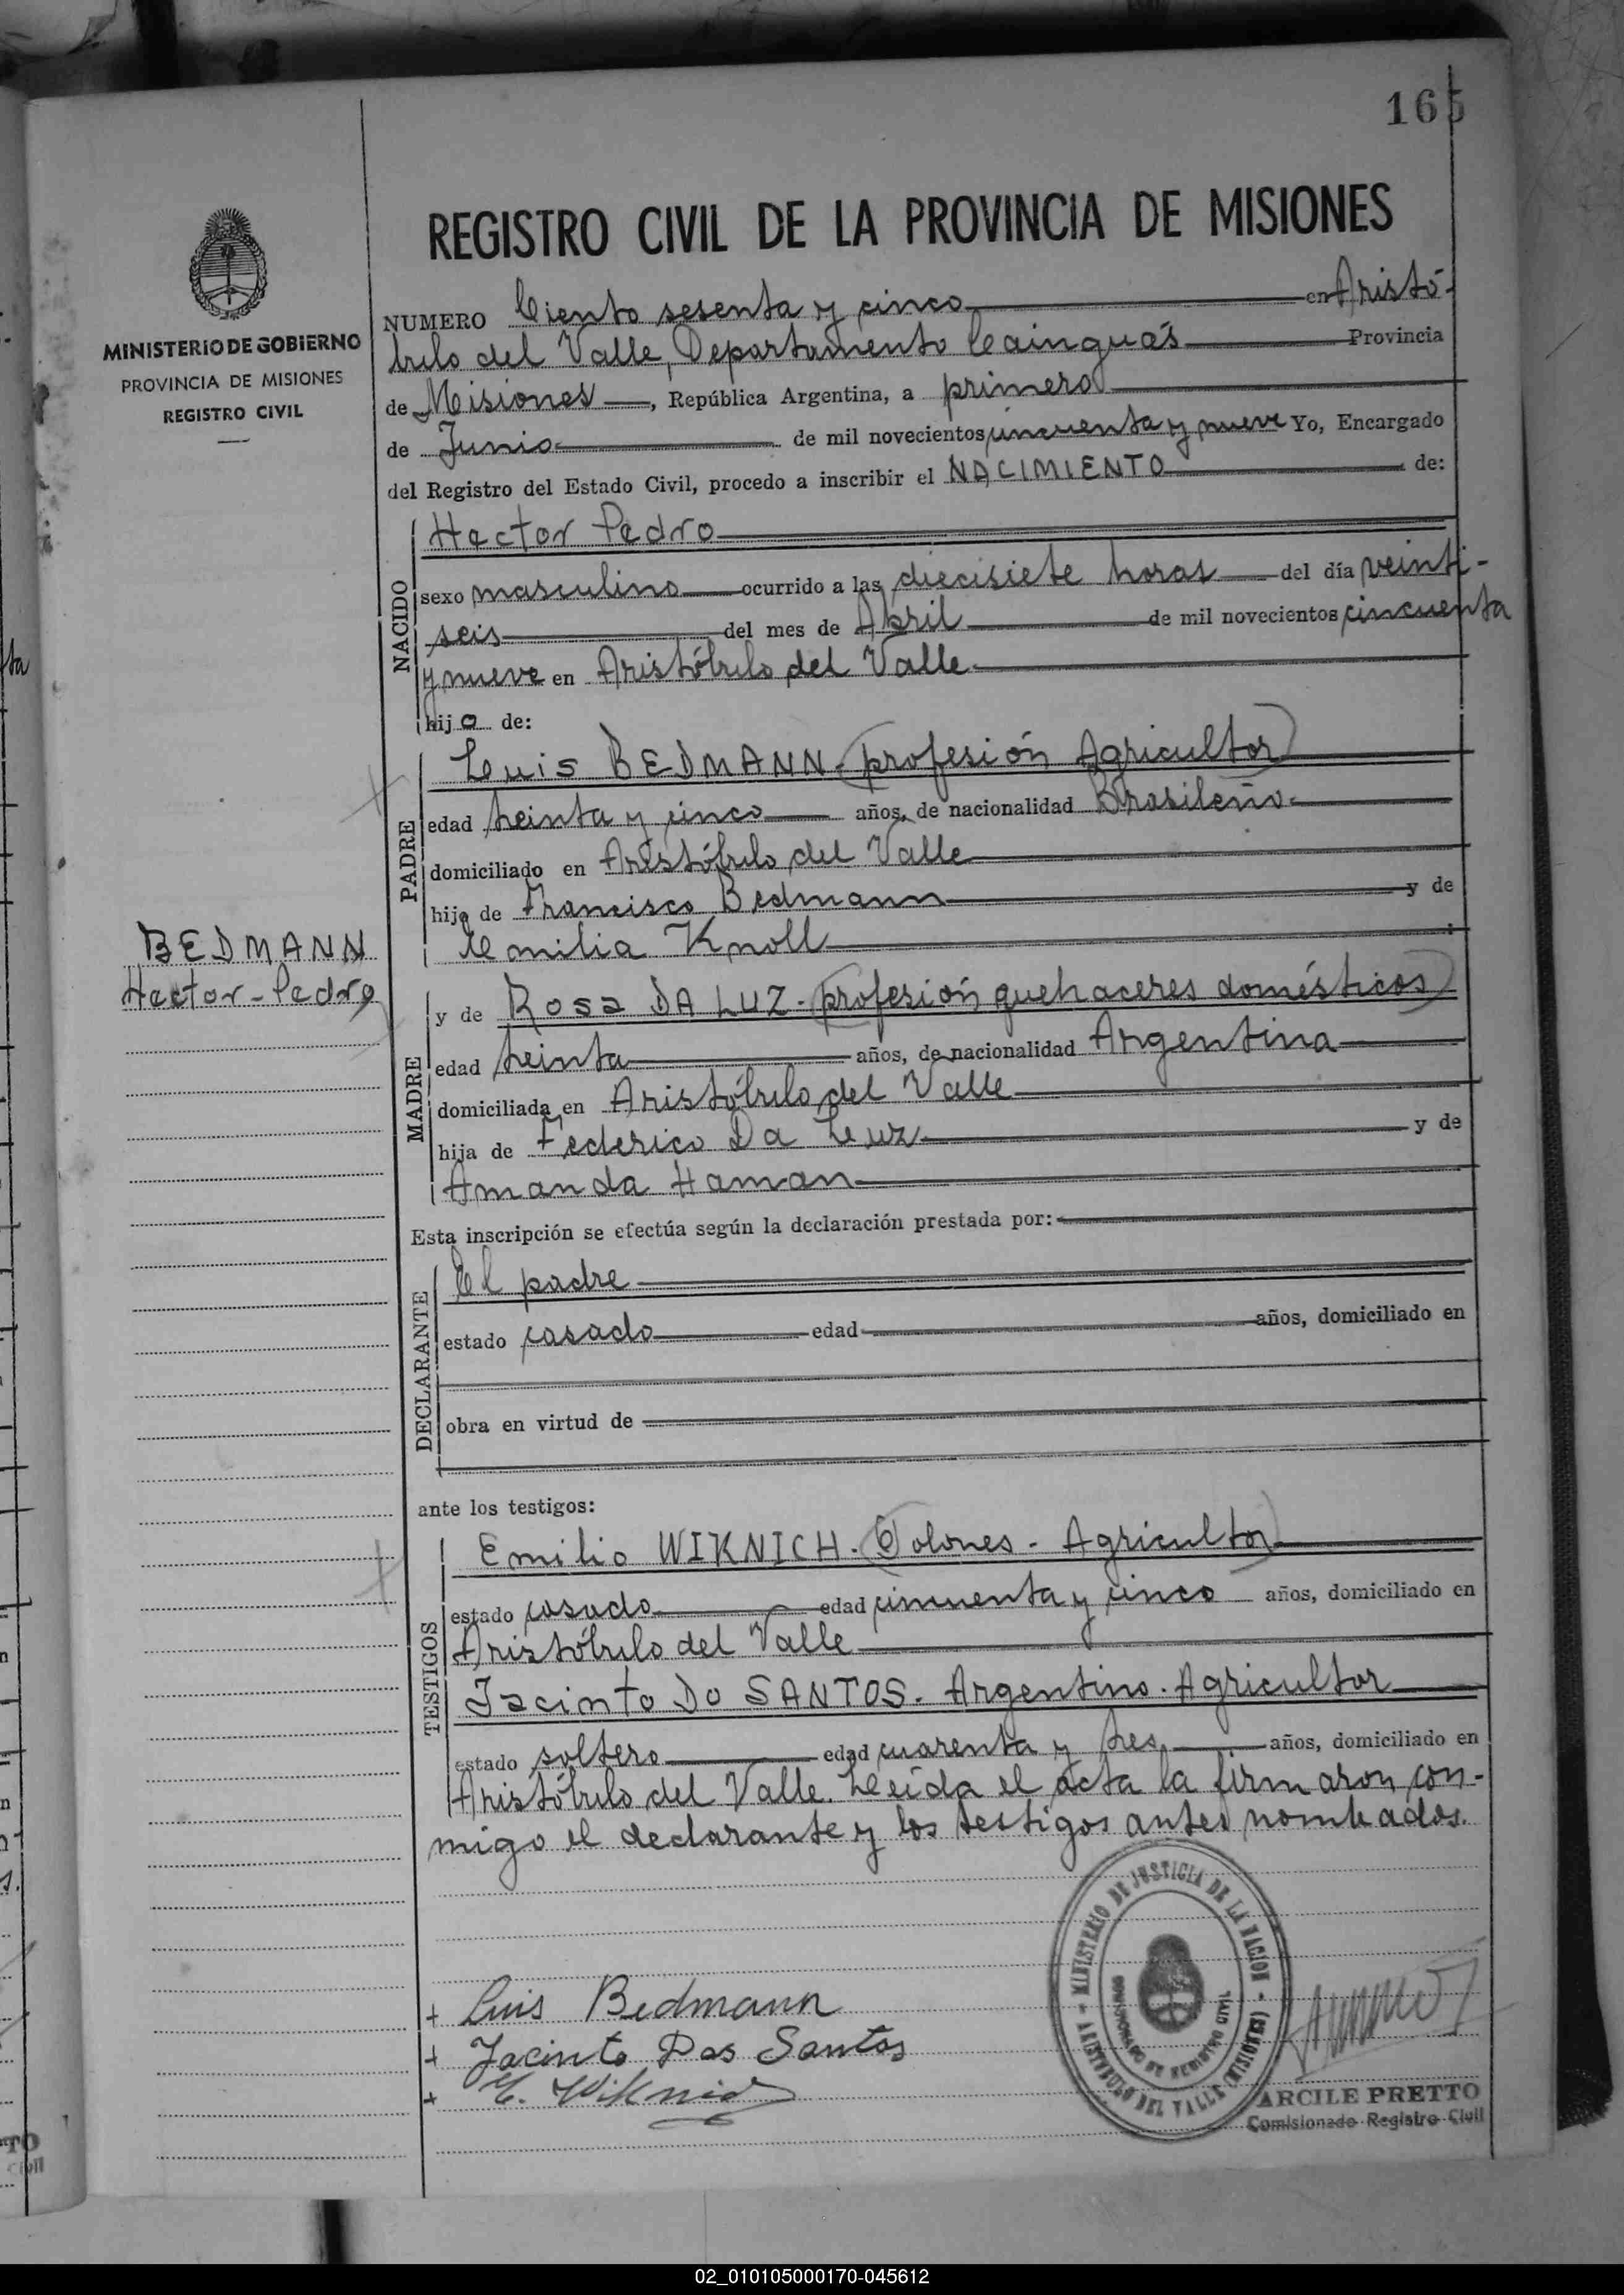 165
REGISTRO CIVIL DE LA PROVINCIA DE MISIONES
MINISTERIO DE GOBIERNO
PROVINCIA DE MISIONES
REGISTRO CIVIL
NUMERO Ciento sesenta y cinco en Aristó-
bulo del Valle, Departamento Cainguás Provincia
de Misiones, República Argentina, a primero
de Junio de mil novecientos cincuenta y nueve Yo, Encargado
del Registro del Estado Civil, procedo a inscribir el NACIMIENTO de:
NACIDO
Hector Pedro
sexo masculino ocurrido a las diecisiete horas del día veinti-
seis del mes de Abril de mil novecientos cincuenta
y nueve en Aristóbulo del Valle
hijo de:
PADRE
Luis BEDMANN - (profesión Agricultor)
edad treinta y cinco años, de nacionalidad Brasileño
domiciliado en Aristóbulo del Valle
hijo de Francisco Bedmann y de
Emilia Knoll :
BEDMANN
Hector-Pedro
MADRE
y de Rosa DA LUZ - (profesión quehaceres domésticos)
edad treinta años, de nacionalidad Argentina
domiciliada en Aristóbulo del Valle
hija de Federico Da Luz y de
Amanda Haman
Esta inscripción se efectúa según la declaración prestada por:
DECLARANTE
El padre
estado casado edad años, domiciliado en
obra en virtud de
ante los testigos:
TESTIGOS
Emilio WIKNICH. (Polones - Agricultor)
estado casado edad cincuenta y cinco años, domiciliado en
Aristóbulo del Valle
Jacinto Do SANTOS. Argentino. Agricultor
estado soltero edad cuarenta y tres años, domiciliado en
Aristóbulo del Valle. Leída el acta la firmaron con-
migo el declarante y los testigos antes nombrados.
+ Luis Bedmann
+ Jacinto Dos Santos
+ E. Wiknich
MINISTERIO DE JUSTICIA DE LA NACION - ARISTOBULO DEL VALLE (MISIONES) -
COMISIONADO DE REGISTRO CIVIL
ARCILE PRETTO
Comisionado Registro Civil
02_010105000170-045612